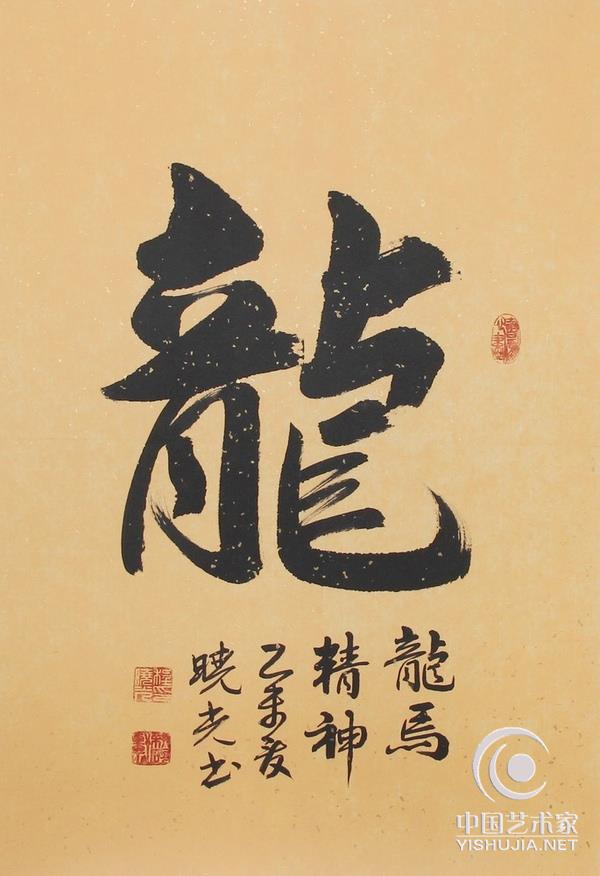 龍
龍馬
精神
乙未夏
曉光书
中国艺术家
YISHUJIA.NET